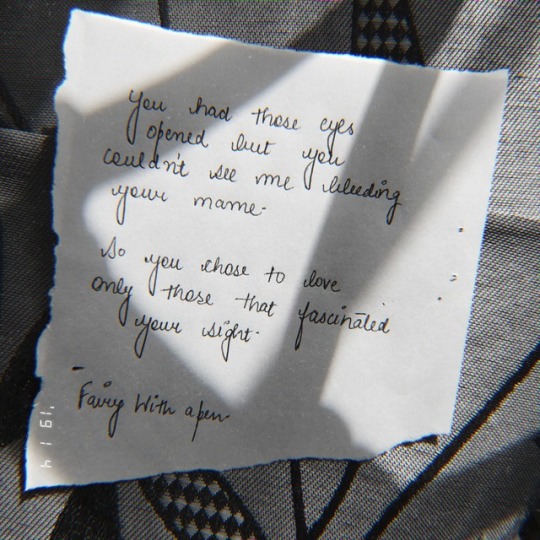 You had those eyes
opened but you
couldn't see me bleeding
your name.
So you chose to love
only those that fascinated
your sight.
- Fairy With a pen
'19 1 4